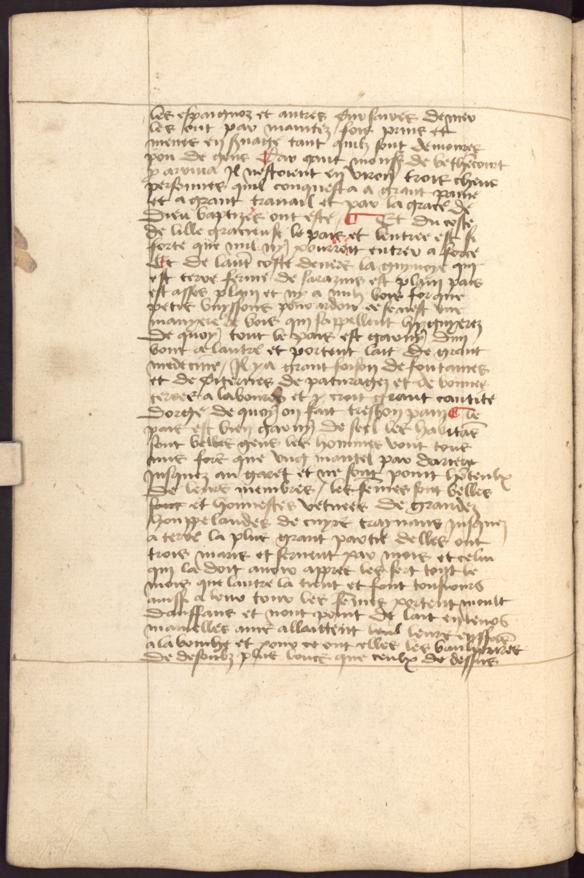 les espaignoz et autres coursaires de mer
les ont par maintez foiz prins et
menes en seruage tant quilz sont demoures
pou de gens Car quant monsr de bethencourt
y arriua Il nestoient en viron trois chens
personnes quil conquesta a grant paine
et a grant trauail et par la grace de
dieu baptizes ont este Et du coste
de lille gracieuse le pais et lentree est si
forte que nul ny pourroit entrer a force
Et de laut coste deuers la guynoye qui
est terre ferme de sarazins est plain pais
est asses plain et ny a nulz bois fors que
petis buissons pour ardoir ce se nest vne
maniere de bois qui sappellent hyguyerez
de quoy tout le pais est garny dun
bout a lautre et portent lait de grant
medecine Il y a grant foison de fontaines
et de citernes de paturages et de bonnes
terres a labourer et y croit grant cantite
dorge de quoy on fait tresbon pain Le
pais est bien garny de seel les habitans
sont belles gens les hommes vont tous
nus fors que vng mantel par derriere
Jusques au garet et ne sont point honteulx
de leurs membres les femes sont belles
et honnestes vetues de grandez
houppelandes de cuyre traynans Jusquez
a terre la plus grant partie delles ont
trois maris et seruent par mois et celui
qui la doit auoir apres les sert tout le
mois que lautre la tient et font tousiours
ainsi a leur tour les femes portent moult
denffans et nont point de lait en leurs
mamelles ains allaittent leurs enffans
a la bouche et pour ce ont elles les baulieures
de desoubz plus longs que ceulx de dessus